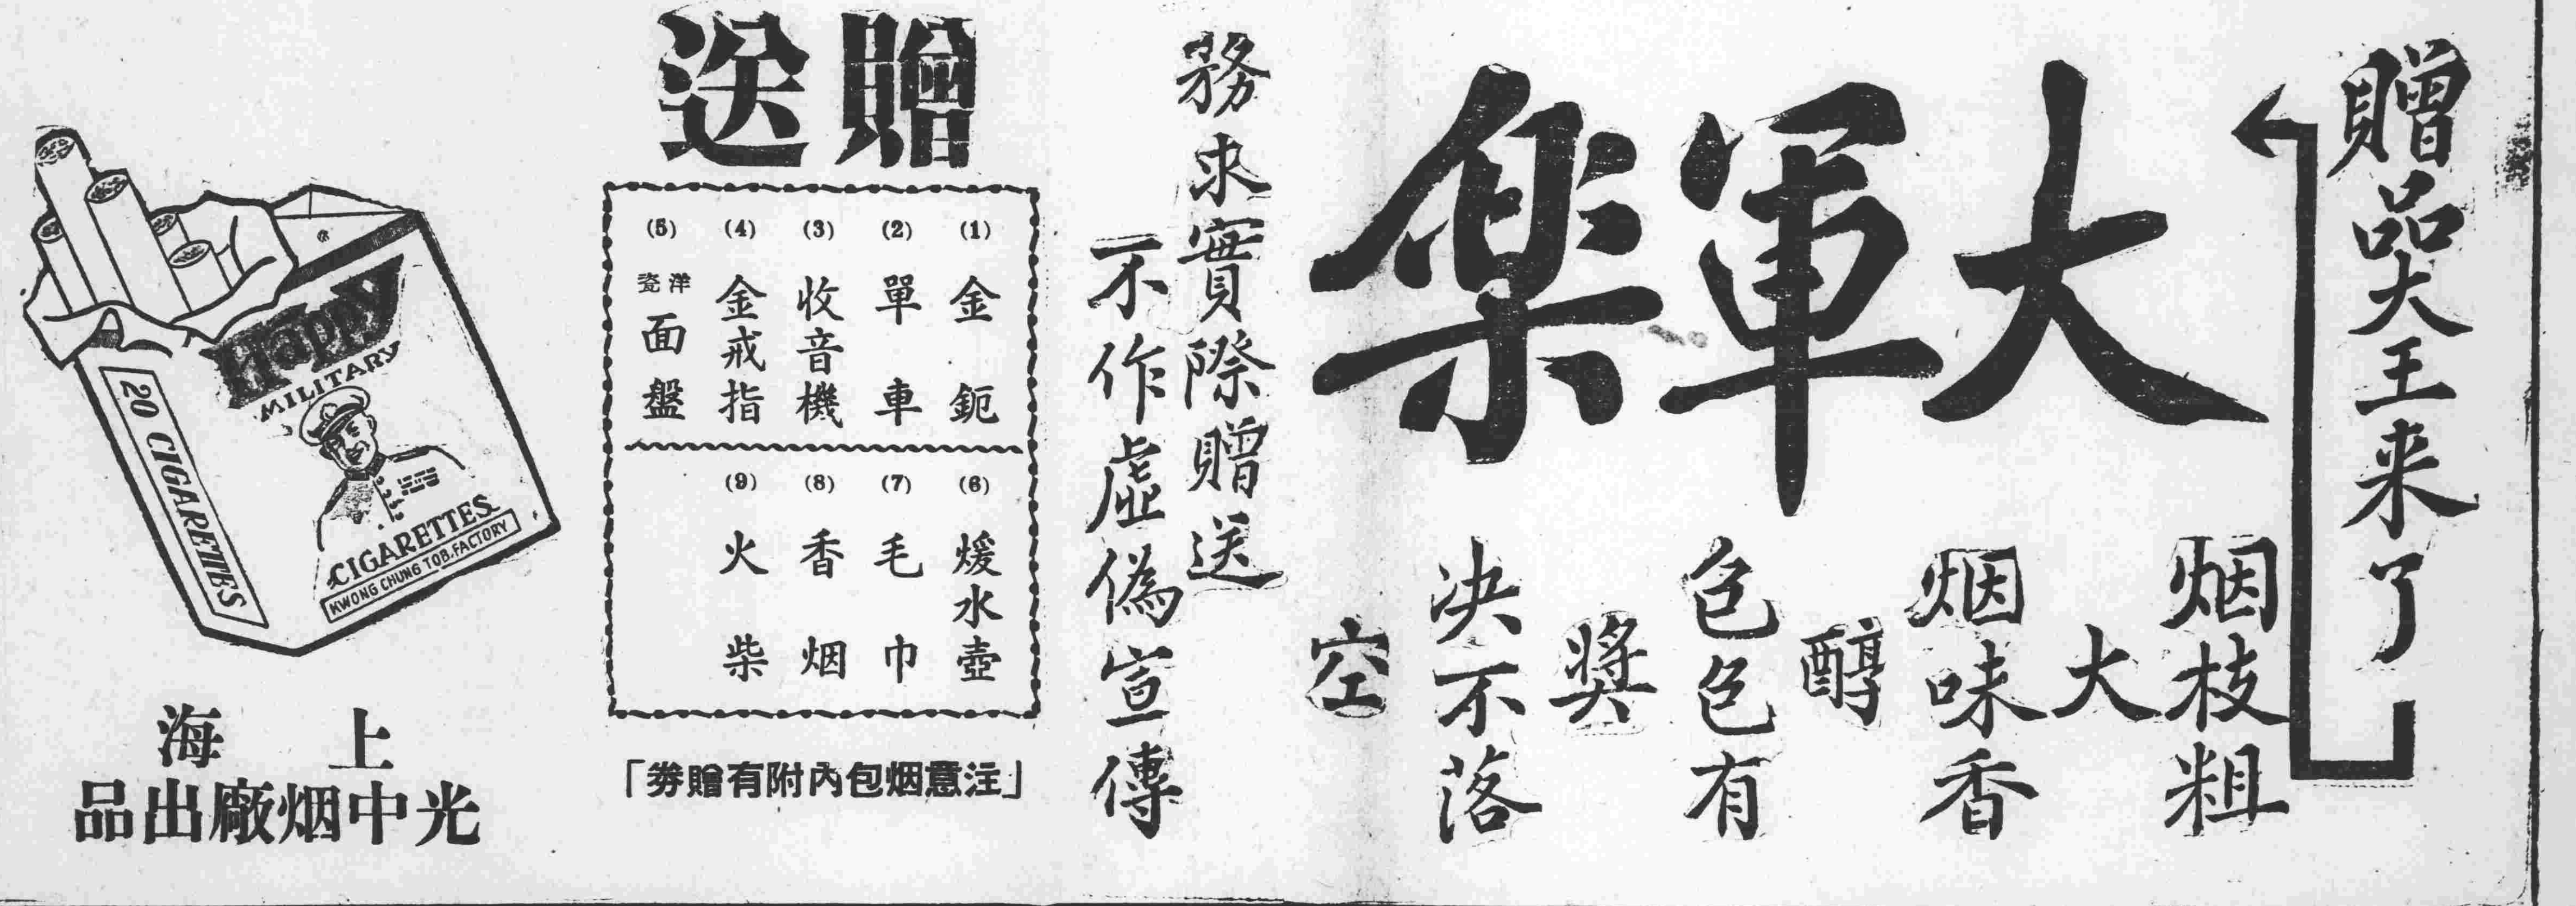 贈品大王来了
大軍楽
烟枝粗大
烟味香醇
色色有奬
决不落空
務求實際贈送
不作虛偽宣傳
贈送
(1) 金鈪
(2) 單車
(3) 收音機
(4) 金戒指
(5) 洋瓷面盤
(6) 煖水壺
(7) 毛巾
(8) 香烟
(9) 火柴
「注意烟包內附有贈券」
Happy
MILITARY
CIGARETTES
KWONG CHUNG TOB. FACTORY
20 CIGARETTES
上海
光中烟廠出品